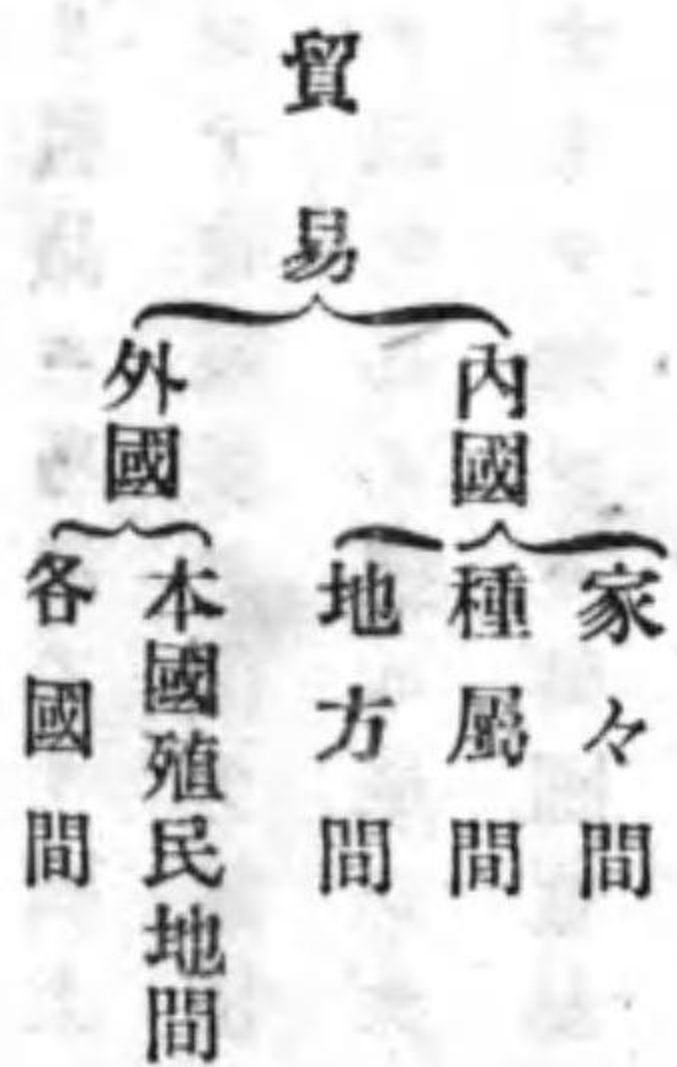 貿易
內國
家々間
種屬間
地方間
外國
本國殖民地間
各國間